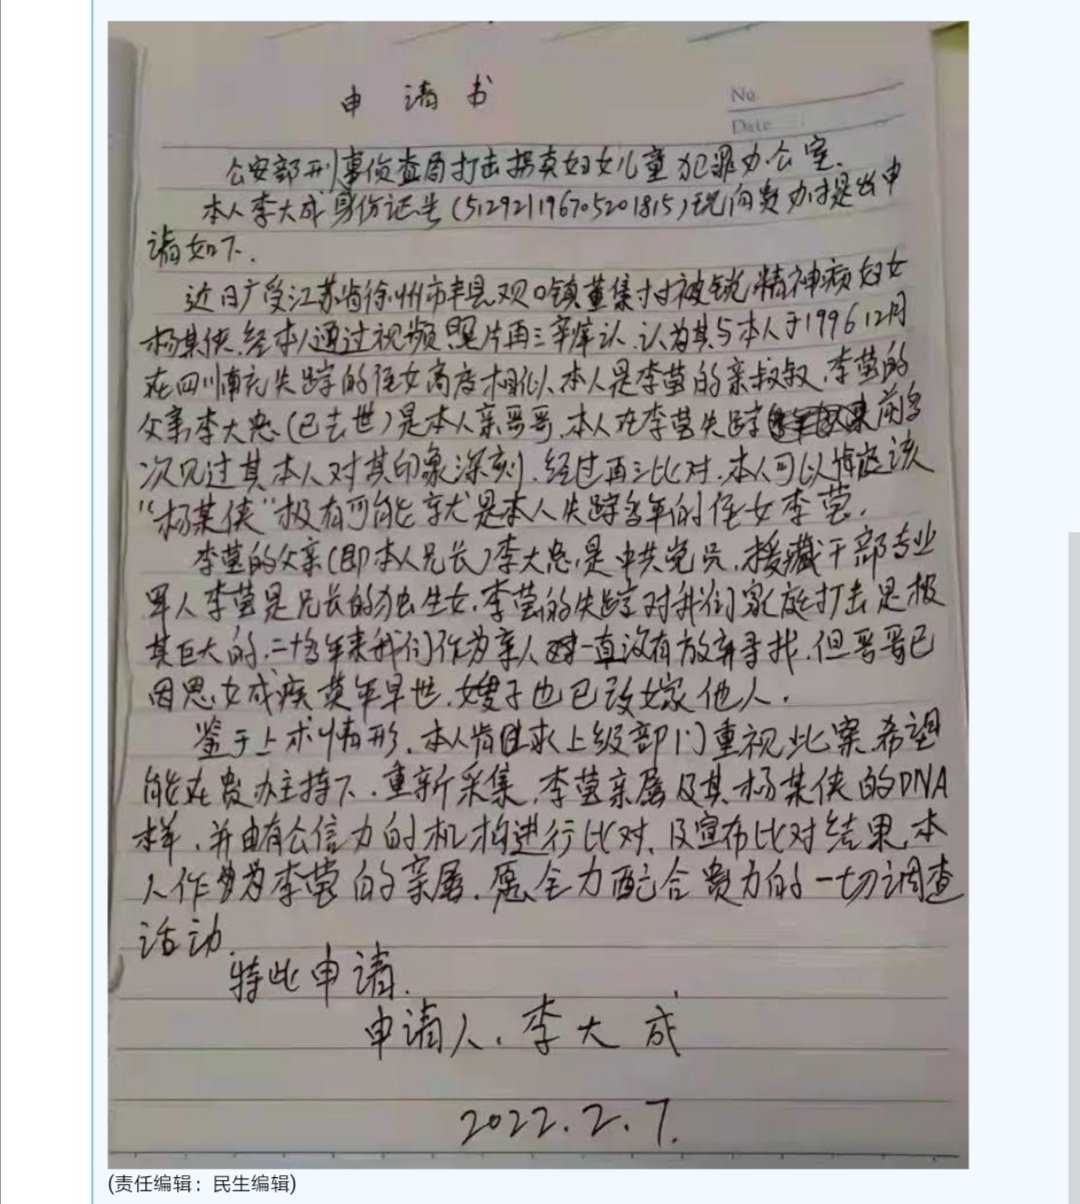 申请书
No
Date
公安部刑事侦查局打击拐卖妇女儿童犯罪办公室.
本人李大成身份证号(512921196705201815)现向贵办提出申
请如下.
近日广受江苏省徐州市丰县欢口镇董集村被锁精神病妇女
杨某侠.经本人通过视频照片再三辨认.认为其与本人于1996 12月
在四川南充失踪的侄女高度相似.本人是李莹的亲叔叔.李莹的
父亲李大忠(已去世)是本人亲哥哥.本人在李莹失踪前多
次见过其本人对其印象深刻.经过再三比对.本人可以该
“杨某侠”极有可能就是本人失踪多年的侄女李莹.
李莹的父亲(即本人兄长)李大忠是中共党员.援藏干部专业
军人李莹是兄长的独生女.李莹的失踪对我们家庭打击是极
其巨大的.二十多年来我们作为亲人一直没有放弃寻找.但哥哥已
因思女成疾英年早世.嫂子也已改嫁他人.
鉴于上术情形.本人肯且求上级部门重视此案希望
能在贵办主持下.重新采集.李莹亲属及其杨某侠的DNA
样.并由有公信力的机构进行比对.及宣布比对结果.本
人作为李莹的亲属.愿全力配合贵方的一切调查
活动.
特此申请.
申请人.李大成
2022.2.7.
(责任编辑：民生编辑)